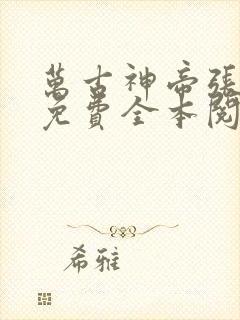 萬古神帝張
免費全本閱
希雅